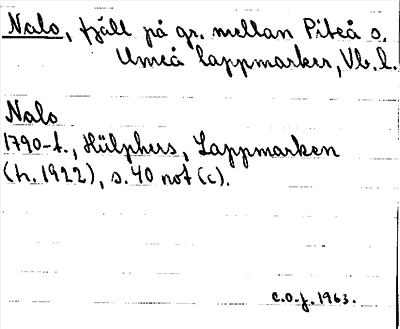 Nalo, fjäll på gr. mellan Piteå o.
Umeå lappmarker, Vb. l.
Nalo
1790-t., Hülphers, Lappmarken
(tr. 1922), s. 40 not (c).
C.O.J. 1963.